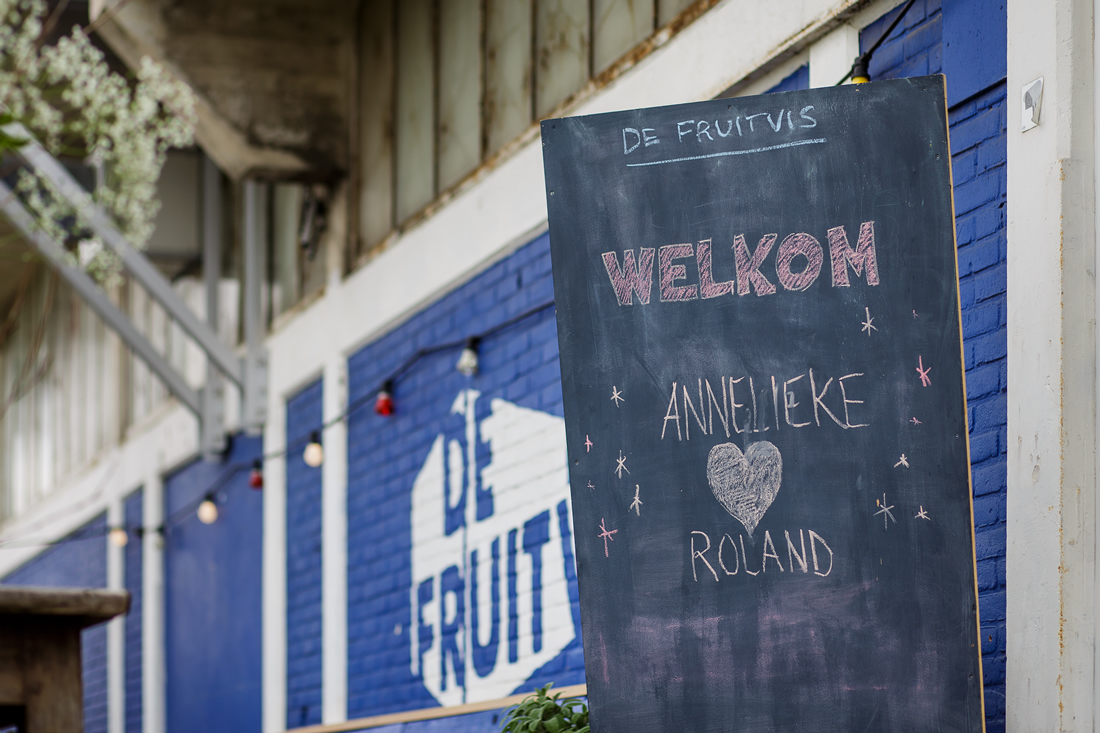 DE FRUITVIS
WELKOM
ANNELIEKE
ROLAND
DE
FRUITV